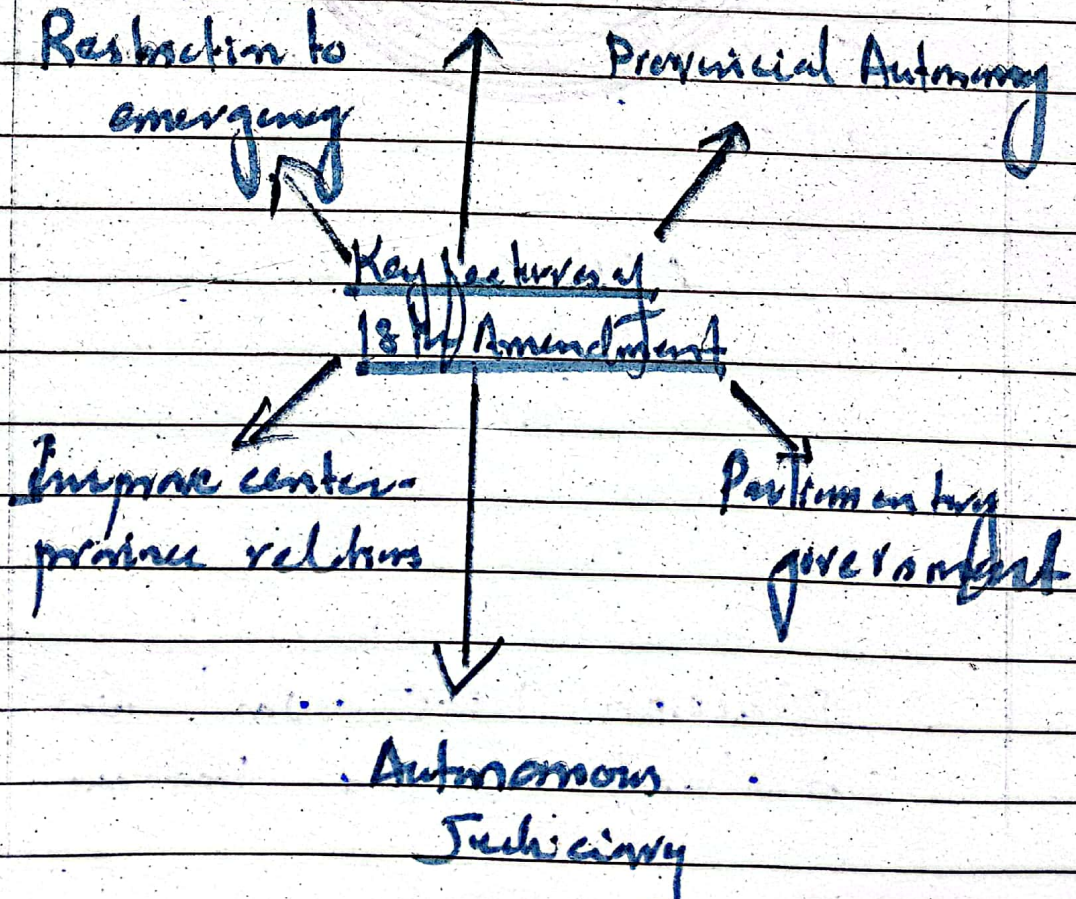 Restriction to
emergency
Provincial Autonomy
Key features of
18th Amendment
Improve center-
province relations
Parliamentary
government
Autonomous
Judiciary